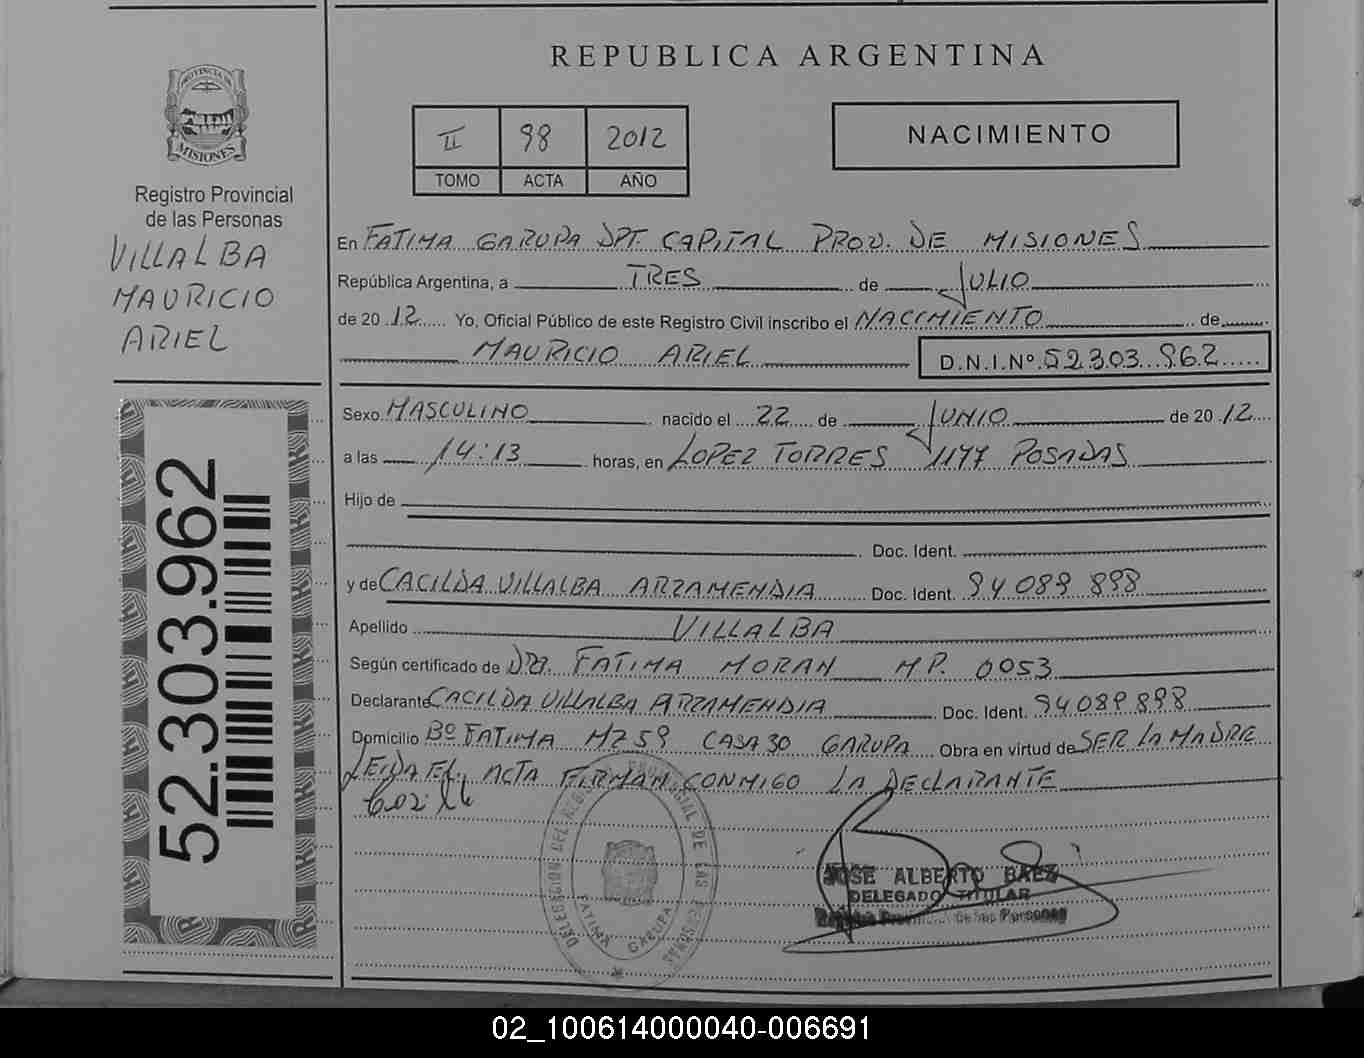 REPUBLICA ARGENTINA
PROVINCIA DE
MISIONES
Registro Provincial
de las Personas
VILLALBA
MAURICIO
ARIEL
52.303.962
II 98 2012
TOMO ACTA AÑO
NACIMIENTO
En FATIMA GARUPA DPT. CAPITAL PROV. DE MISIONES
República Argentina, a TRES de JULIO
de 20 12 Yo, Oficial Público de este Registro Civil inscribo el NACIMIENTO de
MAURICIO ARIEL D.N.I.Nº 52.303.962
Sexo MASCULINO nacido el 22 de JUNIO de 20 12
a las 14:13 horas, en LOPEZ TORRES 1177 POSADAS
Hijo de
Doc. Ident.
y de CACILDA VILLALBA ARZAMENDIA Doc. Ident. 94 089 898
Apellido VILLALBA
Según certificado de DRA. FATIMA MORAN MP. 0053
Declarante CACILDA VILLALBA ARZAMENDIA Doc. Ident. 94 089 898
Domicilio Bº FATIMA MZ 59 CASA 30 GARUPA Obra en virtud de SER LA MADRE
LEIDA EL ACTA FIRMAN CONMIGO LA DECLARANTE
DELEGACION DEL REGISTRO PROVINCIAL DE LAS PERSONAS
FATIMA GARUPA
JOSE ALBERTO BAEZ
DELEGADO TITULAR
de las Personas
02_100614000040-006691